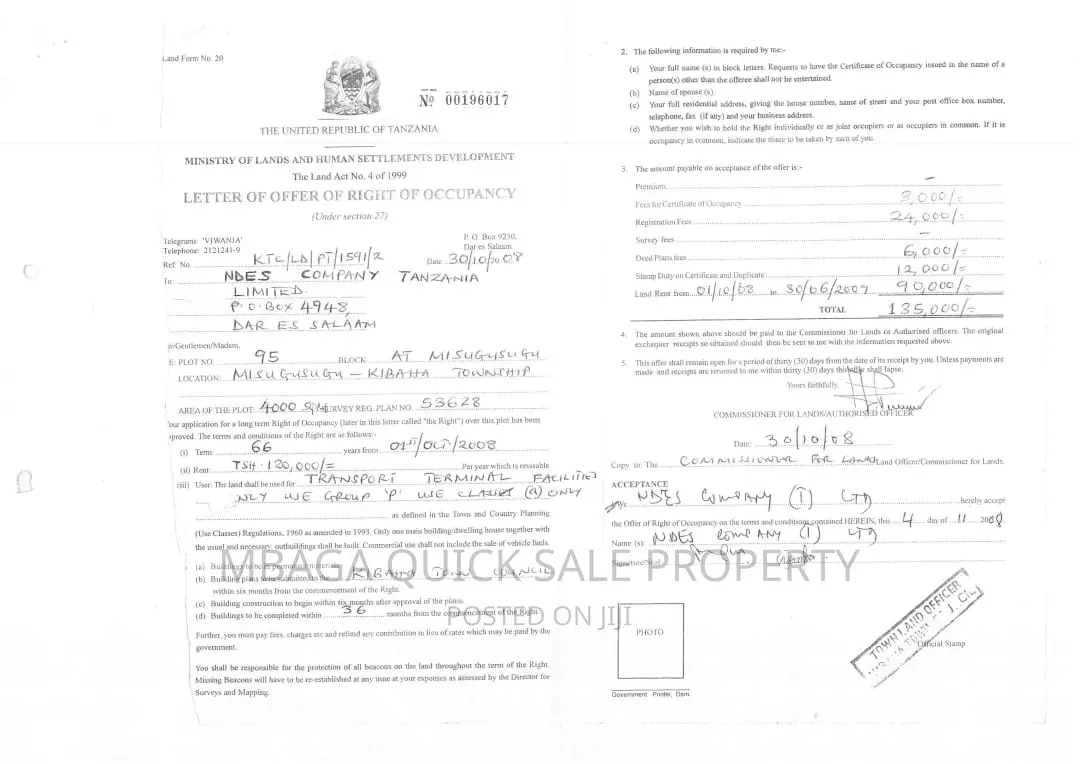 Land Form No. 20
Nº 00196017
THE UNITED REPUBLIC OF TANZANIA
MINISTRY OF LANDS AND HUMAN SETTLEMENTS DEVELOPMENT
The Land Act No. 4 of 1999
LETTER OF OFFER OF RIGHT OF OCCUPANCY
(Under section 27)
Telegrams: 'VIWANJA'
Telephone: 2121241-9
P. O. Box 9230,
Dar es Salaam.
Ref No. KTC/LD/PT/1591/2
Date 30/10/2008
To: NDES COMPANY TANZANIA
LIMITED.
P.O. BOX 4948,
DAR ES SALAAM
Gentlemen/Madam,
PLOT NO. 95 BLOCK AT MISUGUSUGU
LOCATION: MISUGUSUGU – KIBAHA TOWNSHIP
AREA OF THE PLOT: 4000 SQM SURVEY REG. PLAN NO. 53628
Your application for a long term Right of Occupancy (later in this letter called "the Right") over this plot has been
approved. The terms and conditions of the Right are as follows:-
(i) Term: 66 years from 01st/OCT/2008
(ii) Rent: TSH. 120,000/= Per year which is revisable
(iii) User: The land shall be used for TRANSPORT TERMINAL FACILITIES
ONLY USE GROUP 'P' USE CLASSES (a) ONLY
as defined in the Town and Country Planning
(Use Classes) Regulations, 1960 as amended in 1993. Only one main building/dwelling house together with
the usual and necessary outbuildings shall be built. Commercial use shall not include the sale of vehicle fuels.
(a) Buildings to be in permanent materials
(b) Building plans to be submitted to the KIBAHA TOWN COUNCIL
within six months from the commencement of the Right.
(c) Building construction to begin within six months after approval of the plans.
(d) Buildings to be completed within 36 months from the commencement of the Right.
Further, you must pay fees, charges etc and refund any contribution in lieu of rates which may be paid by the
government.
You shall be responsible for the protection of all beacons on the land throughout the term of the Right.
Missing Beacons will have to be re-established at any issue at your expenses as assessed by the Director for
Surveys and Mapping.
2. The following information is required by me:-
(a) Your full name (s) in block letters. Requests to have the Certificate of Occupancy issued in the name of a
person(s) other than the offeree shall not be entertained.
(b) Name of spouse (s).
(c) Your full residential address, giving the house number, name of street and your post office box number,
telephone, fax (if any) and your business address.
(d) Whether you wish to hold the Right individually or as joint occupiers or as occupiers in common. If it is
occupancy in common, indicate the share to be taken by each of you.
3. The amount payable on acceptance of the offer is:-
Premium –
Fees for Certificate of Occupancy 3,000/=
Registration Fees 24,000/=
Survey fees –
Deed Plans fees 6,000/=
Stamp Duty on Certificate and Duplicate 12,000/=
Land Rent from 01/10/08 to 30/06/2009 90,000/=
TOTAL 135,000/=
4. The amount shown above should be paid to the Commissioner for Lands or Authorised officers. The original
exchequer receipts so obtained should then be sent to me with the information requested above.
5. This offer shall remain open for a period of thirty (30) days from the date of its receipt by you. Unless payments are
made and receipts are returned to me within thirty (30) days this offer shall lapse.
Yours faithfully,
COMMISSIONER FOR LANDS/AUTHORISED OFFICER
Date: 30/10/08
Copy to: The COMMISSIONER FOR LANDS Land Officer/Commissioner for Lands.
ACCEPTANCE
I/We NDES COMPANY (T) LTD hereby accept
the Offer of Right of Occupancy on the terms and conditions contained HEREIN, this 4 day of 11 2008
Name (s): NDES COMPANY (T) LTD
Signature/Seal
PHOTO
TOWN LAND OFFICER
Official Stamp
Government Printer, Dsm
MBAGA QUICK SALE PROPERTY
POSTED ON JIJI